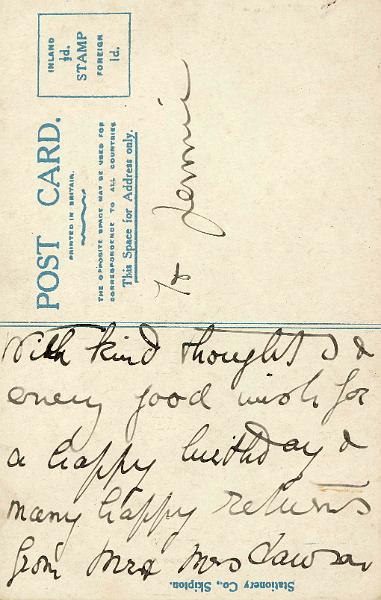 INLAND
½d.
STAMP
FOREIGN
1d.
POST CARD.
PRINTED IN BRITAIN.
THE OPPOSITE SPACE MAY BE USED FOR
CORRESPONDENCE TO ALL COUNTRIES
This Space for Address only.
To Jennie
With kind thoughts &
every good wish for
a happy birthday &
many happy returns
from Mr & Mrs Lawson
Stationery Co., Skipton.